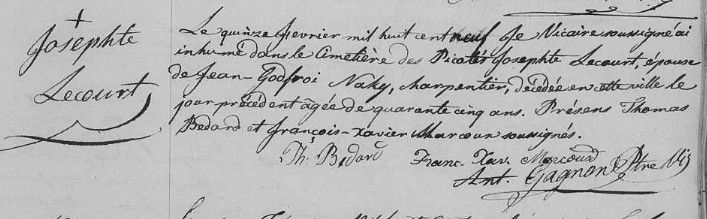 Josephte
Lecourt
Le quinze fevrier mil huit cent neuf Je Vicaire soussigné ai
inhumé dans le Cimetière des Picotés Josephte Lecourt, épouse
de Jean-Godfroi Naky, charpentier, décédée en cette ville le
jour précédent agée de quarante cinq ans. Présens Thomas
Bedard et françois-Xavier Marcoux soussignés.
Th. Bedard Franc. Xav. Marcoud
Ant. Gagnon Ptre Vic